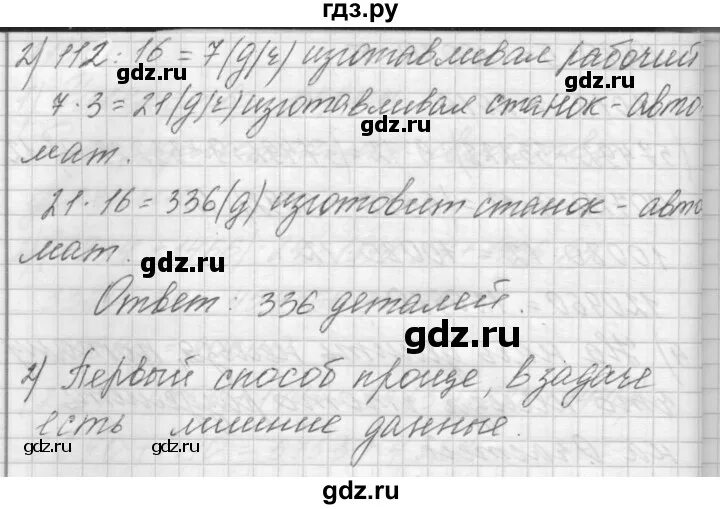 гдз.ру
2) 112 : 16 = 7 (д/ч) изготавливал рабочий
gdz.ru
7 · 3 = 21 (д/ч) изготавливал станок-авто
gdz.ru
мат.
21 · 16 = 336 (д) изготовит станок-авто
gdz.ru
мат.
gdz.ru
Ответ: 336 деталей.
gdz.ru
2) Первый способ проще, в задаче
есть лишние данные.
gdz.ru gdz.ru gdz.ru
gdz.ru